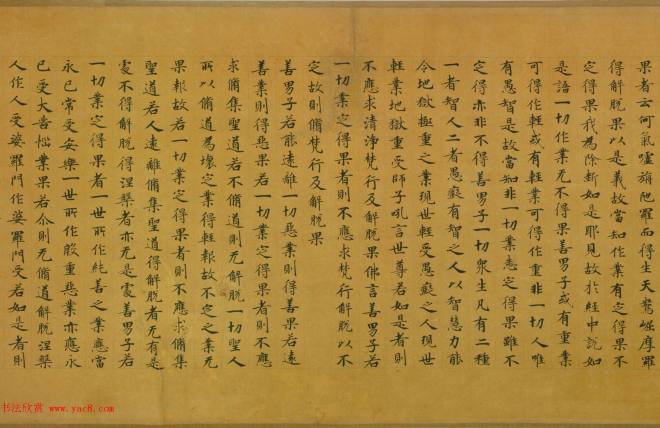 果者云何氣噓旃陁羅而得生天鴦崛摩羅
得解脫果以是義故當知作業有定得果不
定得果我為除斷如是耶見故於經中說如
是語一切作業无不得果善男子或有重業
可得作輕或有輕業可得作重非一切人唯
有愚智是故當知非一切業悉定得果雖不
定得亦非不得善男子一切眾生凡有二種
一者智人二者愚癡有智之人以智慧力能
令地獄極重之業現世輕受愚癡之人現世
輕業地獄重受師子吼言世尊若如是者則
不應求清淨梵行及解脫果佛言善男子若
一切業定得果者則不應求梵行解脫以不
定故則脩梵行及解脫果
善男子若能遠離一切惡業則得善果若遠
善業則得惡果若一切業定得果者則不應
求脩集聖道若不脩道則无解脫一切聖人
所以脩道為壞定業得輕報故不定之業无
果報故若一切業定得果者則不應求脩集
聖道若人遠離脩集聖道得解脫者无有是
處不得解脫得涅槃者亦无是處善男子若
一切業定得果者一世所作純善之業應當
永已常受安樂一世所作股重惡業亦應永
已受大苦惱業果若尒則无脩道解脫涅槃
人作人受婆羅門作婆羅門受若如是者則
书法欣赏 www.yac8.com